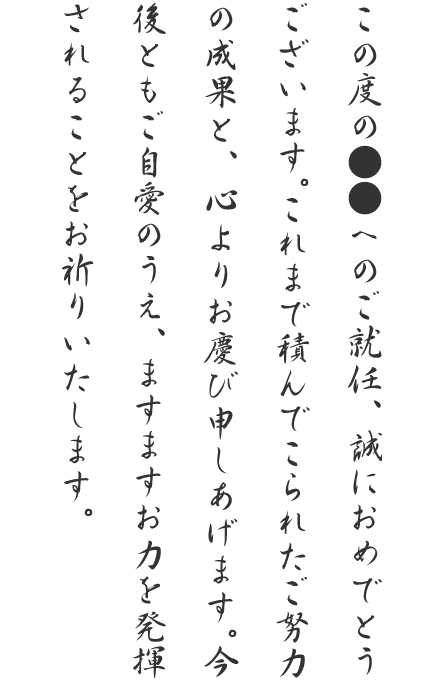 この度の●●へのご就任、誠におめでとう
ございます。これまで積んでこられたご努力
の成果と、心よりお慶び申しあげます。今
後ともご自愛のうえ、ますますお力を発揮
されることをお祈りいたします。